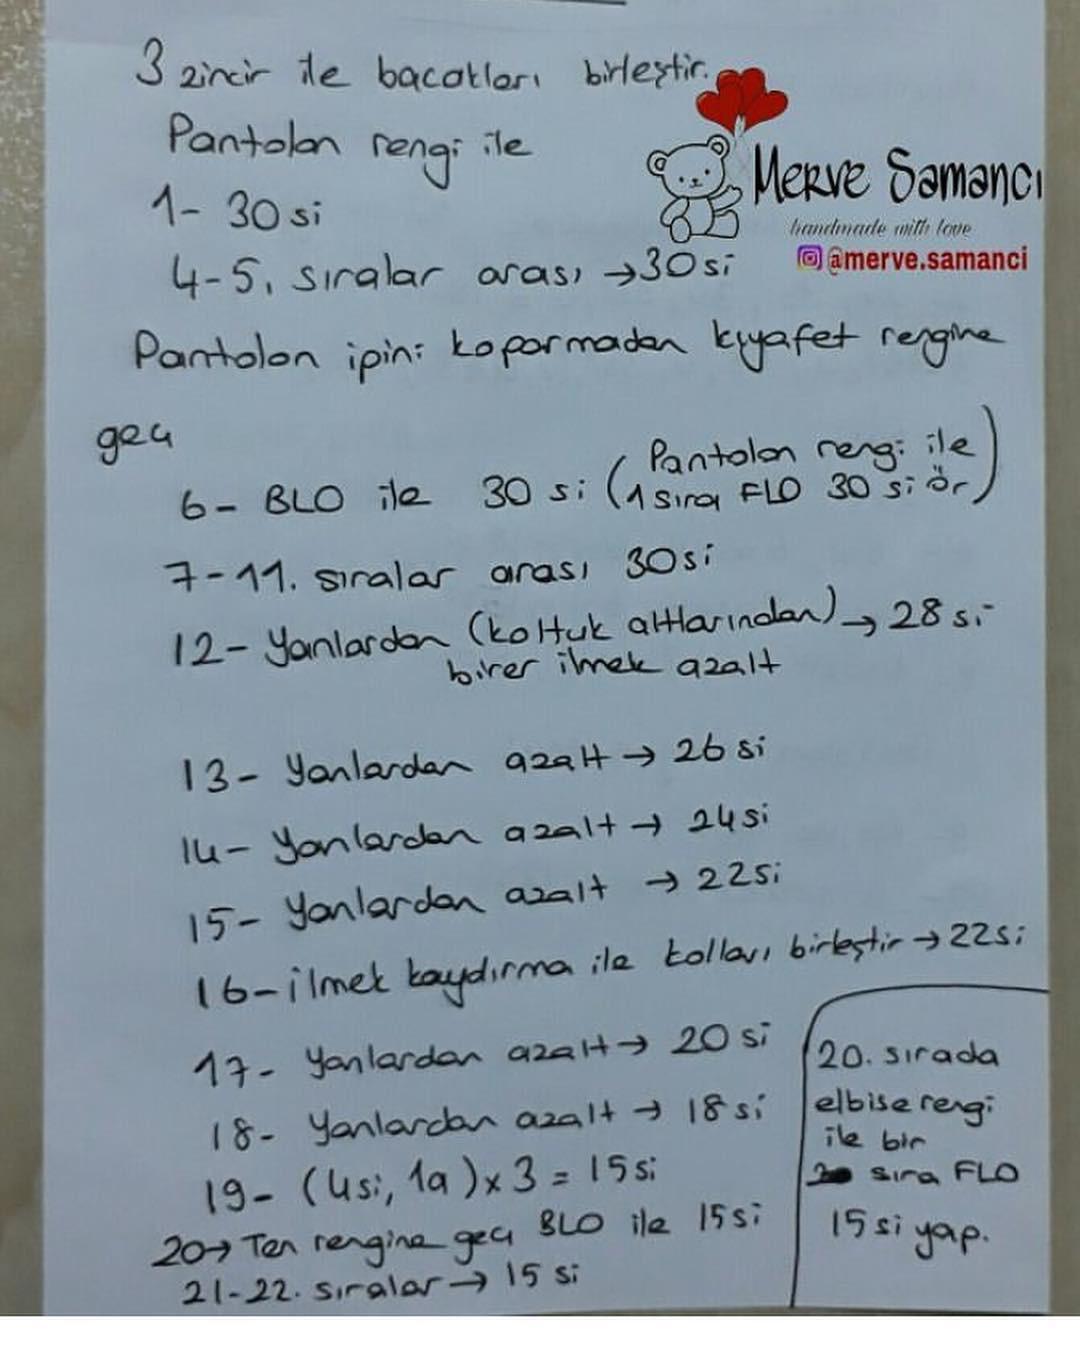 3 zincir ile bacakları birleştir.
Pantolon rengi ile
1- 30 si
4-5. sıralar arası → 30 si
Pantolon ipini koparmadan kıyafet rengine
geç
6- BLO ile 30 si (Pantolon rengi ile
1 sıra FLO 30 si ör)
7-11. sıralar arası 30 si
12- Yanlardan (koltuk altlarından) → 28 si
birer ilmek azalt
13- Yanlardan azalt → 26 si
14- Yanlardan azalt → 24 si
15- Yanlardan azalt → 22 si
16- ilmek kaydırma ile kolları birleştir → 22 si
17- Yanlardan azalt → 20 si
18- Yanlardan azalt → 18 si
19- (4si, 1a) x 3 = 15 si
20→ Ten rengine geç BLO ile 15 si
21-22. sıralar → 15 si
20. sırada
elbise rengi
ile bir
sıra FLO
15 si yap.
Merve Samancı
handmade with love
@merve.samanci